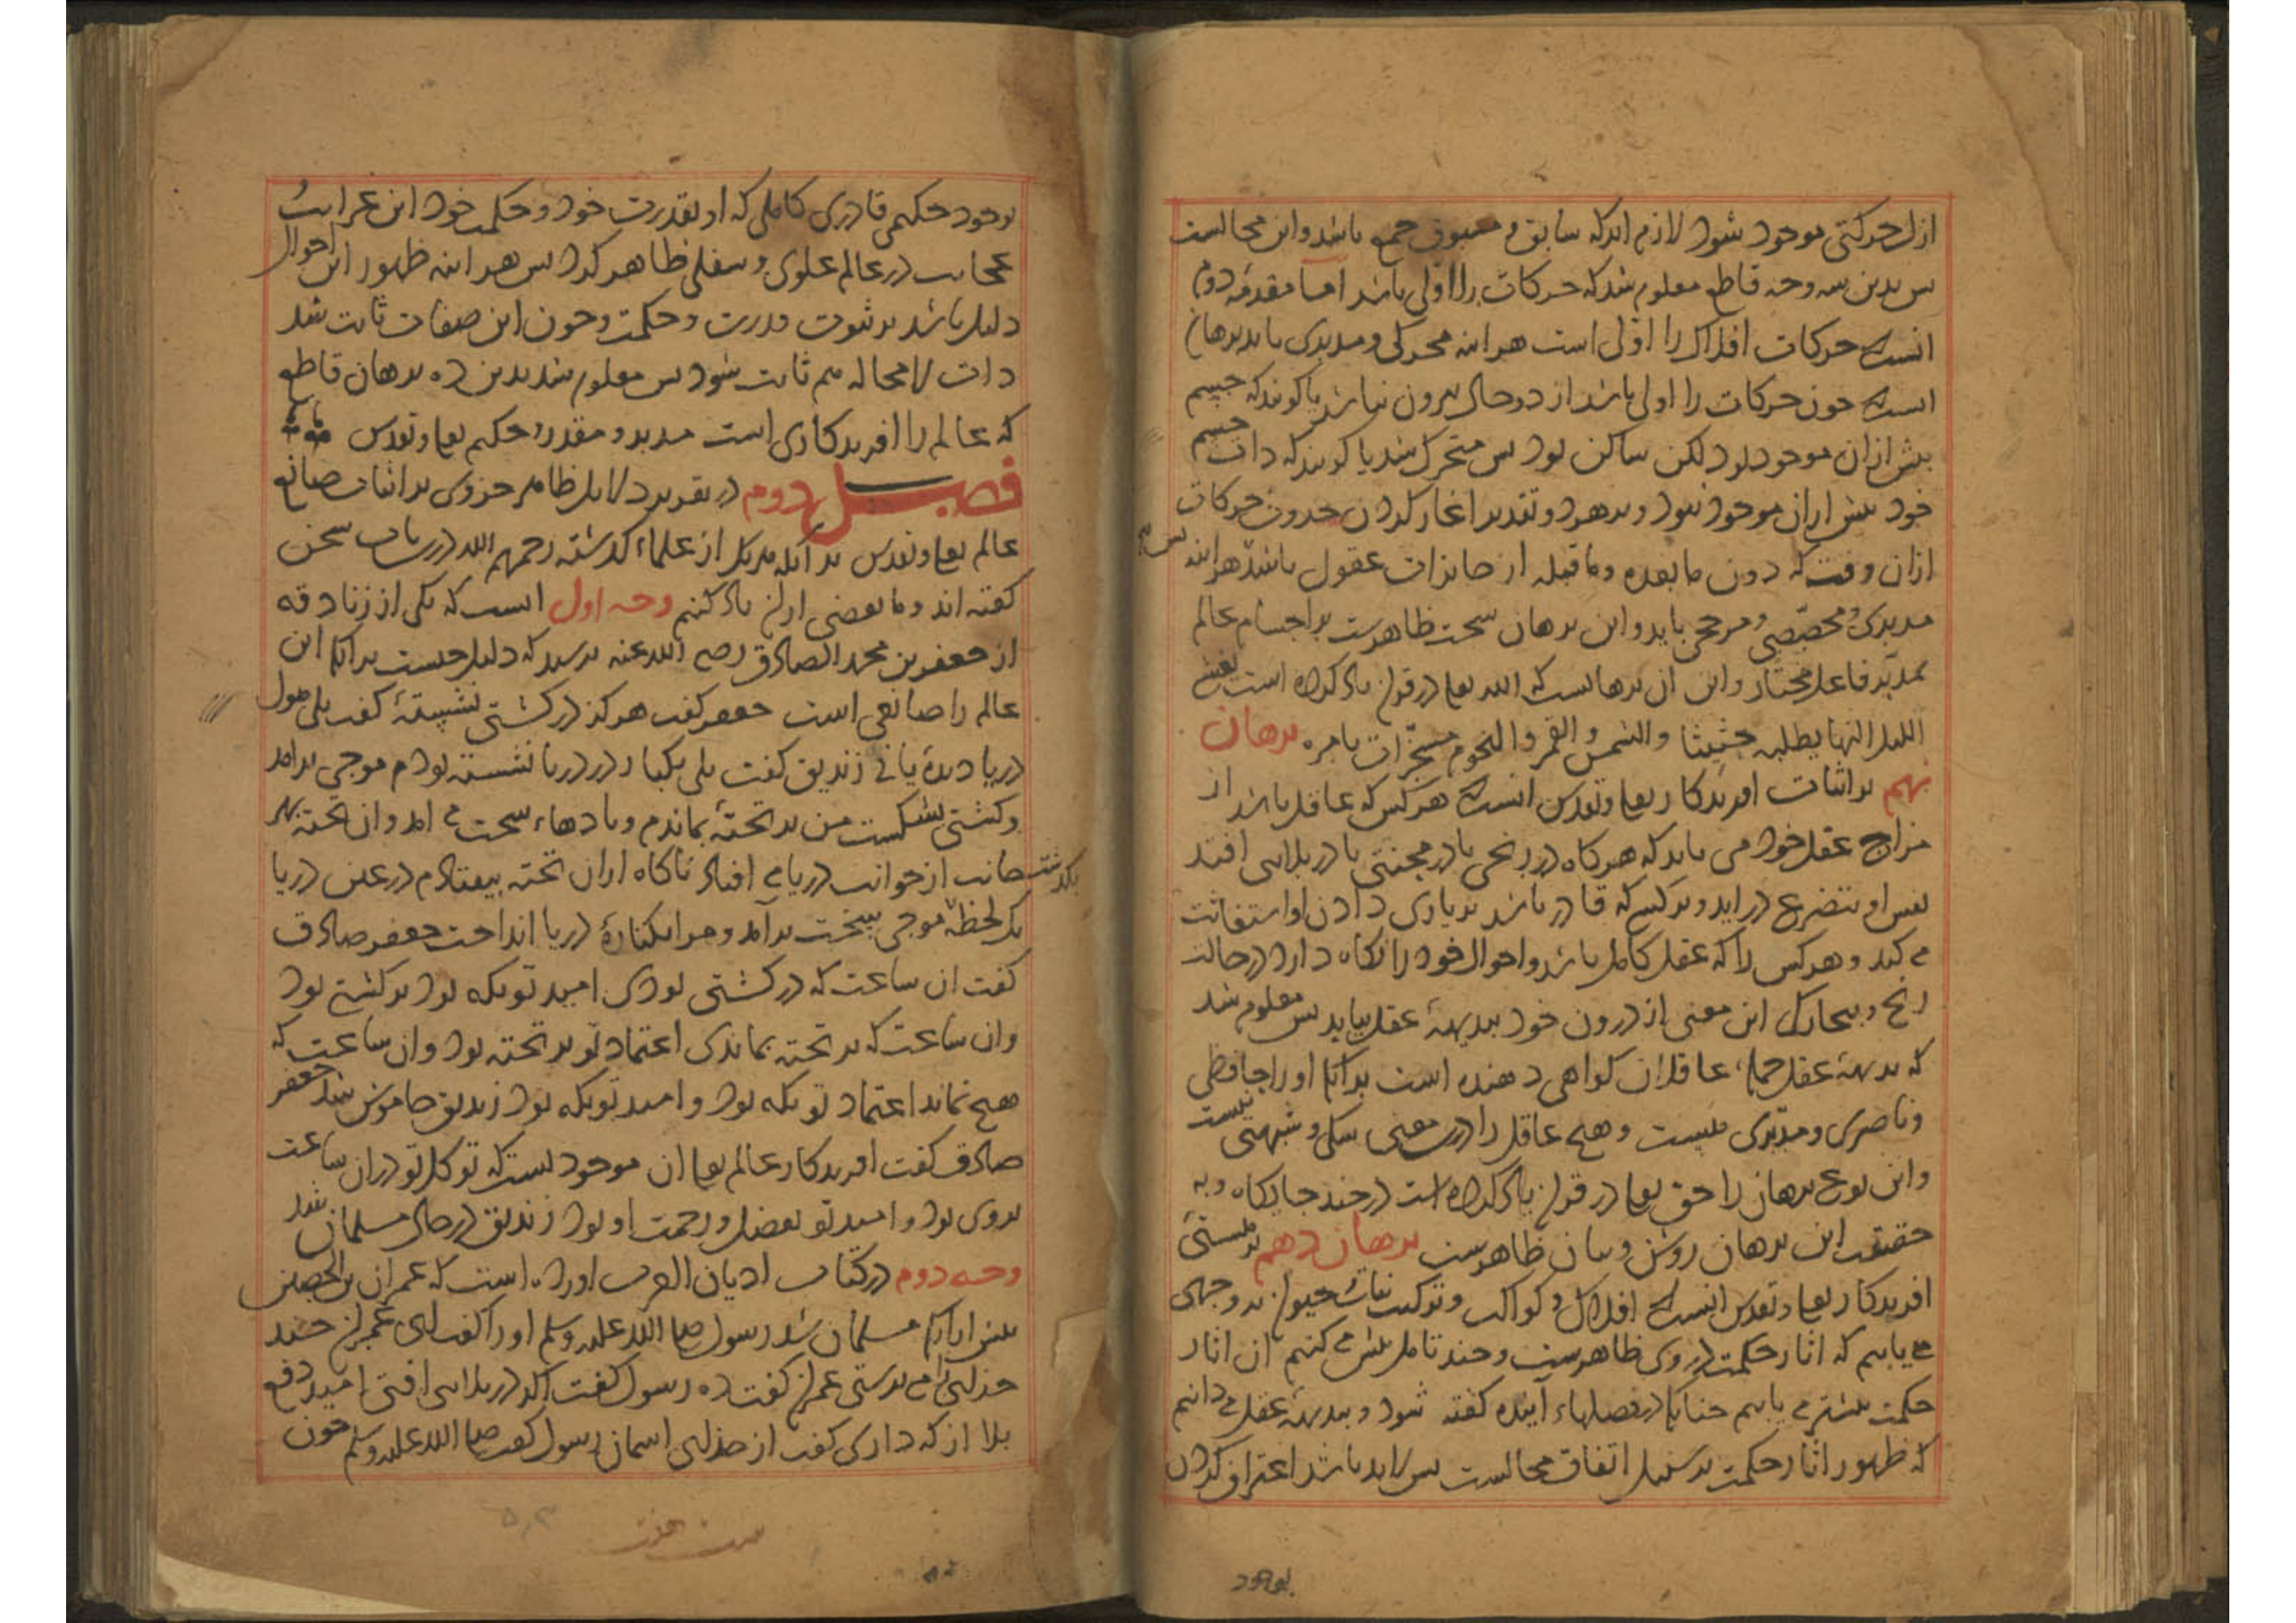 ازل حرکتی موجود شود لازم اید که سابق و مسبوق جمع باشد و این محالست
پس بدین سه وجه قاطع معلوم شد که حرکات را اولی باشد اما مقدمهٔ دوم
انست که حرکات افلاک را اولی است هر اینه محرکی و مدبری باید برهان
انست که چون حرکات را اولی باشد از دو حال بیرون نباشد یا کویند که جسم
پیش ازان موجود بود لکن ساکن بود پس متحرک شد یا کویند که ذات جسم
خود پیش ازان موجود نبود و بر هر دو تقدیر اغاز کردن حدوث حرکات
ازان وقت که دون ما بعده و ما قبله از جایزات عقول باشد پس هر اینه
مدبری و مخصصی و مرجحی باید و این برهان سخت ظاهرست بر اجسام عالم
بمدبر فاعل مختار و این ان برهانست که الله تعا در قران یاد کرده است یغشی
اللیل النهار یطلبه حثیثا و الشمس و القمر و النجوم مسخرات بامره برهان
نهم بر اثبات افریدکار تعا و تقدس انست که هر کس که عاقل باشد از
مزاج عقل خود می یابد که هرکاه در رنجی یا در محنتی یا در بلایی افتد
نفس او بتضرع در اید و بر کسی که قادر باشد بر یاری دادن او استغاثت
می کند و هر کس را که عقل کامل باشد و احوال خود را نکاه دارد در حالت
رنج و بیچارکی این معنی از درون خود ببدیههٔ عقل بیابد پس معلوم شد
که بدیههٔ عقل جملهٔ عاقلان کواهی دهنده است بر انکه او را حافظی
و ناصری و مدبری هست و هیچ عاقل را درین معنی شکی و شبهتی نیست
و این نوع برهان را حق تعا در قران یاد کرده است در چند جایکاه و به
حقیقت این برهان روشن و بیان ظاهرست برهان دهم بر هستی
افریدکار تعا و تقدس انست که افلاک و کواکب و ترکیب نبات و حیوان بر وجهی
می یابیم که اثار حکمت در وی ظاهرست و چند تامل بیش می کنیم ان اثار
حکمت بیشتر می یابیم چنانکه در فصلهاء آینده کفته شود و ببدیههٔ عقل می دانیم
که ظهور اثار حکمت بر سبیل اتفاق محالست پس لابد باشد اعتراف کردن
بوجود
بوجود حکیمی قادری کاملی که او بقدرت خود و حکمت خود این غرایب
عجایب در عالم علوی و سفلی ظاهر کرد پس هر اینه ظهور این احوال
دلیل باشد بر ثبوت قدرت و حکمت و چون این صفات ثابت شد
ذات لا محاله هم ثابت شود پس معلوم شد بدین ده برهان قاطع
که عالم را افریدکاری است مدبر و مقدر و حکیم تعا و تقدس
فصل دوم در تقریر دلایل ظاهر حزوی بر اثبات صانع
عالم تعا و تقدس بدانکه هر یک از علماء کذشته رحمهم الله درین باب سخن
کفته اند و ما بعضی ازان یاد کنیم وجه اول انست که یکی از زنادقه
از جعفر بن محمد الصادق رضی الله عنه پرسید که دلیل چیست بر انکه این
عالم را صانعی است جعفر کفت هرکز در کشتی نشستهٔ کفت بلی هول
دریا دیدهٔ یا نی زندیق کفت بلی یکبار در دریا نشسته بودم موجی برامد
و کشتی بشکست من بر تختهٔ بماندم و بادهاء سخت می امد و ان تخته بهر
جانب از جوانب دریا می افتاد ناکاه ازان تخته بیفتادم در عین دریا
بکذشت
یک لحظه موجی سخت برآمد و مرا بکنارهٔ دریا انداخت جعفر صادق
کفت ان ساعت که در کشتی بودی امید تو بکه بود بر کشتی بود
و ان ساعت که بر تخته بماندی اعتماد تو بر تخته بود و ان ساعت که
هیچ نماند اعتماد تو بکه بود و امید تو بکه بود زندیق خاموش شد جعفر
صادق کفت افریدکار عالم تعا ان موجودیست که توکل تو دران ساعت
بروی بود و امید تو بفضل و رحمت او بود زندیق در حال مسلمان شد
وجه دوم در کتاب ادیان العرب اورده است که عمران بن الحصین
پیش ازانکه مسلمان شد رسول صلی الله علیه وسلم او را کفت ای عمران چند
خدای را می پرستی عمران کفت ده رسول کفت اکر در بلایی افتی امید دفع
بلا از که داری کفت از خدای اسمان رسول کفت صلی الله علیه وسلم چون